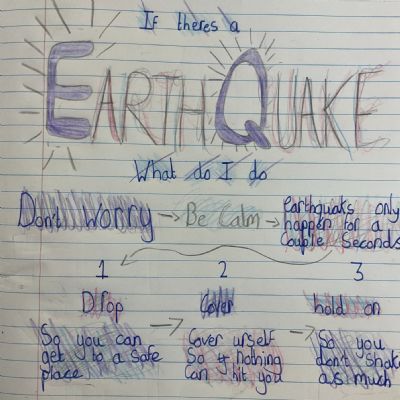 If theres a
EARTHQUAKE
What do I do
Don't Worry → Be Calm → Earthquaks only
happen for a
Couple Seconds
1 2 3
Drop Cover hold on
So you can
get to a safe
place
Cover urself
So nothing
Can hit you
So you
don't shake
as much